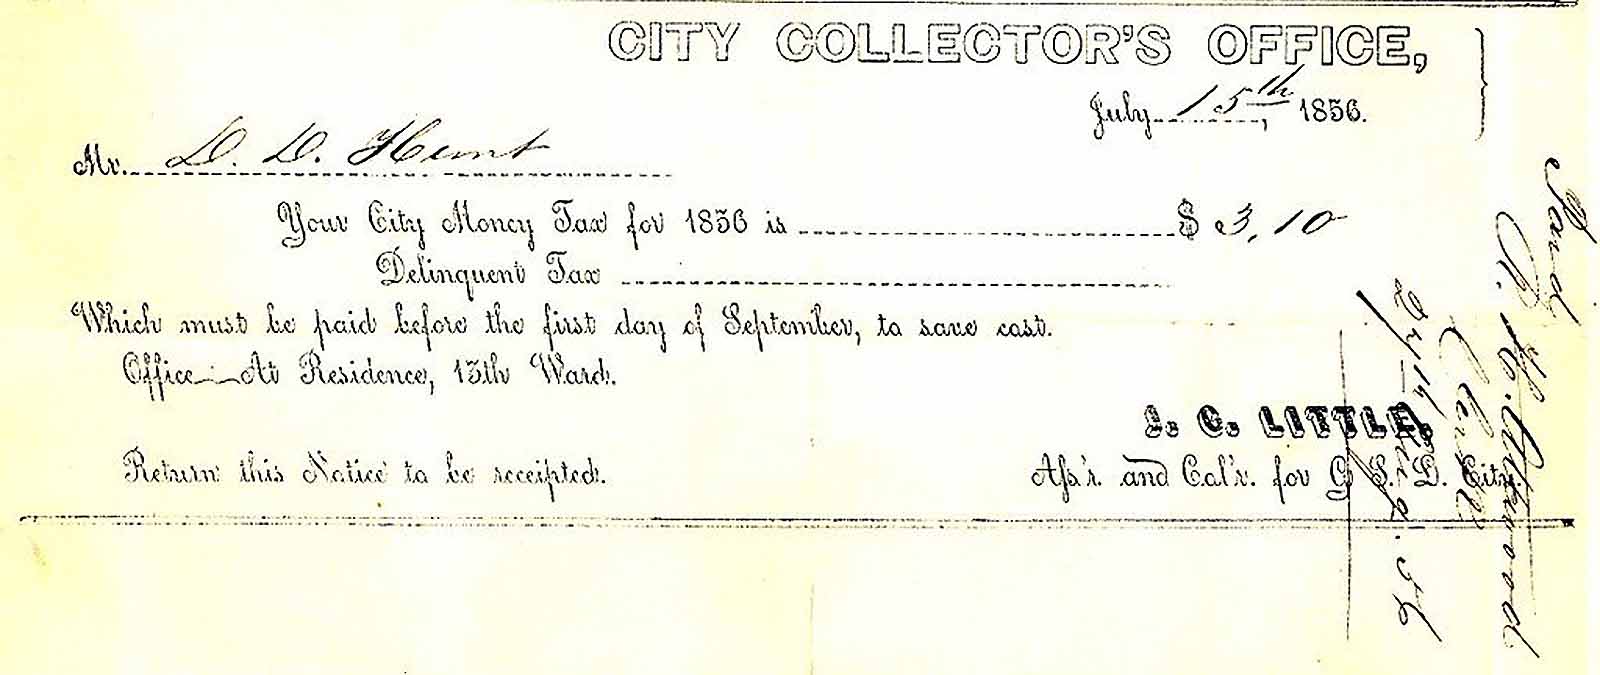 CITY COLLECTOR'S OFFICE,
July 15th, 1856.
Mr. D. D. Hunt
Your City Money Tax for 1856 is $ 3,10
Delinquent Tax
Which must be paid before the first day of September, to save cost.
Office—At Residence, 13th Ward.
J. C. LITTLE,
Ass'r. and Col'r. for G. S. L. City.
Return this Notice to be receipted.
Paid
Clerk